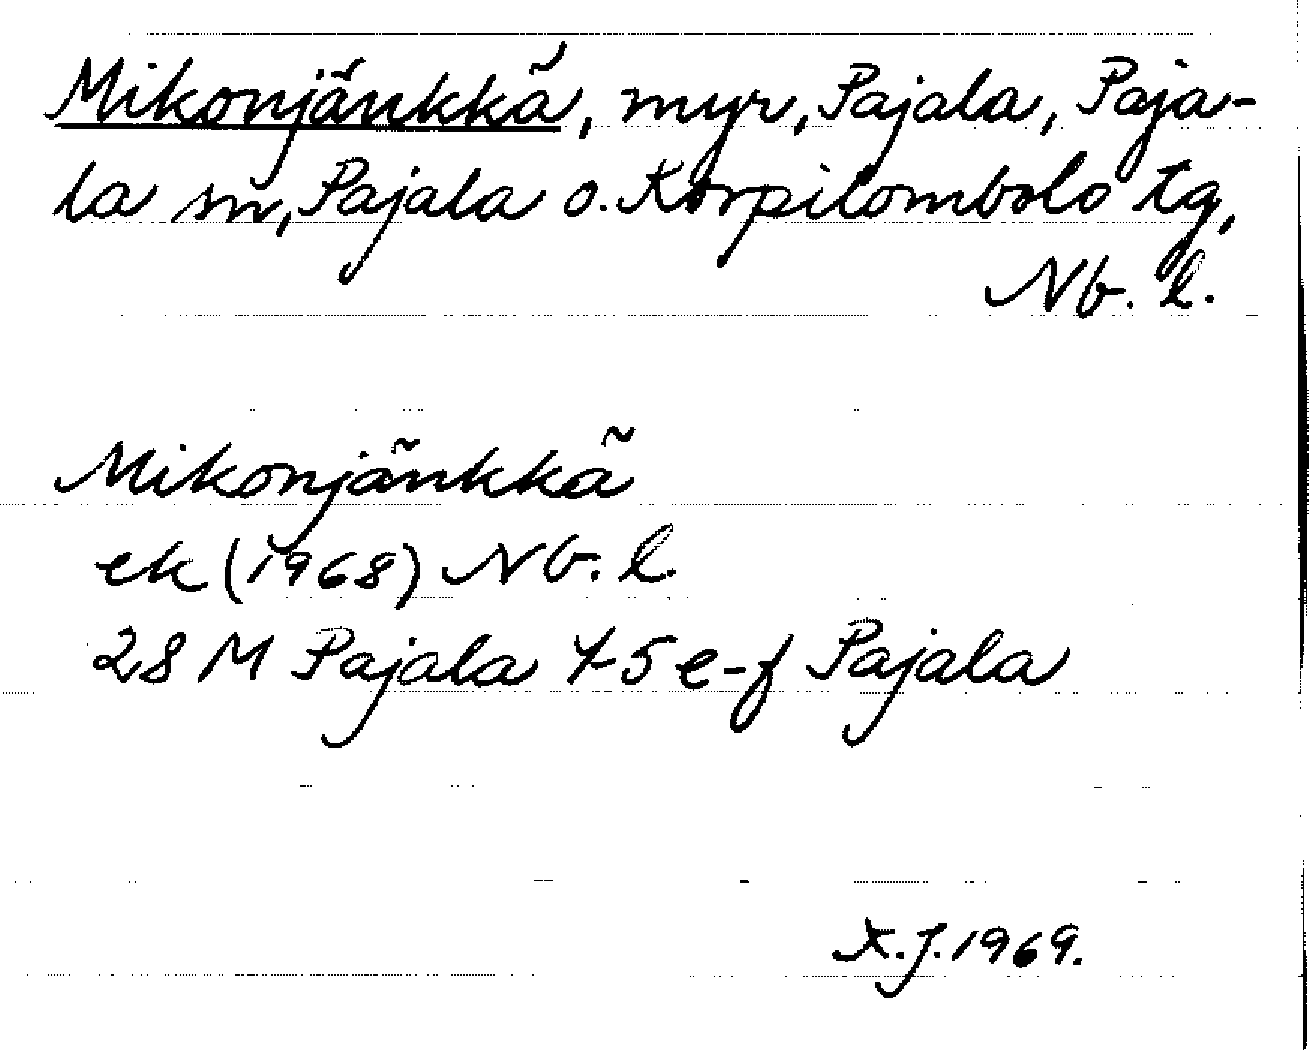 Mikonjänkkä, myr, Pajala, Paja-
la sn, Pajala o. Korpilombolo tg,
Nb. l.
Mikonjänkkä
ek (1968) Nb. l.
28 M Pajala 4-5 e-f Pajala
K.J. 1969.